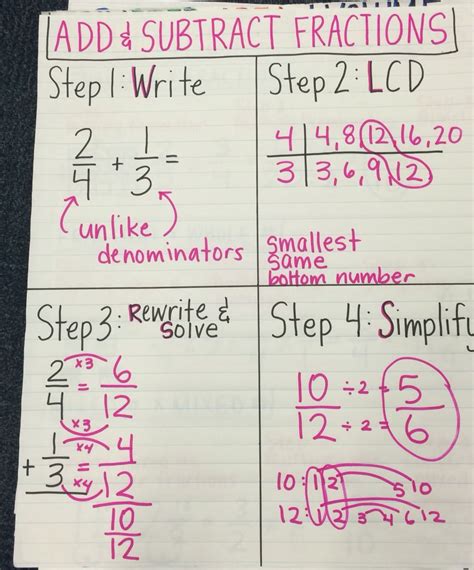 ADD & SUBTRACT FRACTIONS
Step 1: Write
2/4 + 1/3 =
unlike
denominators
Step 2: LCD
4 | 4, 8, 12, 16, 20
3 | 3, 6, 9, 12
smallest
same
bottom number
Step 3: Rewrite &
Solve
2/4 = 6/12
x3
x3
+ 1/3 = 4/12
x4
x4
10/12
Step 4: Simplify
10 ÷ 2 = 5
12 ÷ 2 = 6
10: 1 2 5 10
12: 1 2 3 4 6 12